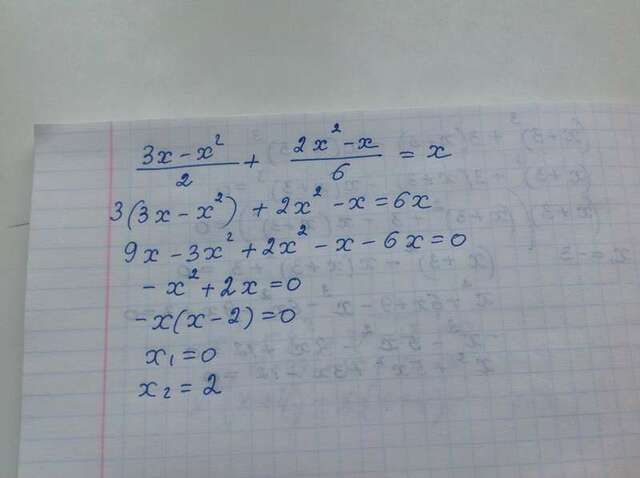 (3x - x²)/2 + (2x² - x)/6 = x
3(3x - x²) + 2x² - x = 6x
9x - 3x² + 2x² - x - 6x = 0
- x² + 2x = 0
- x(x - 2) = 0
x₁ = 0
x₂ = 2